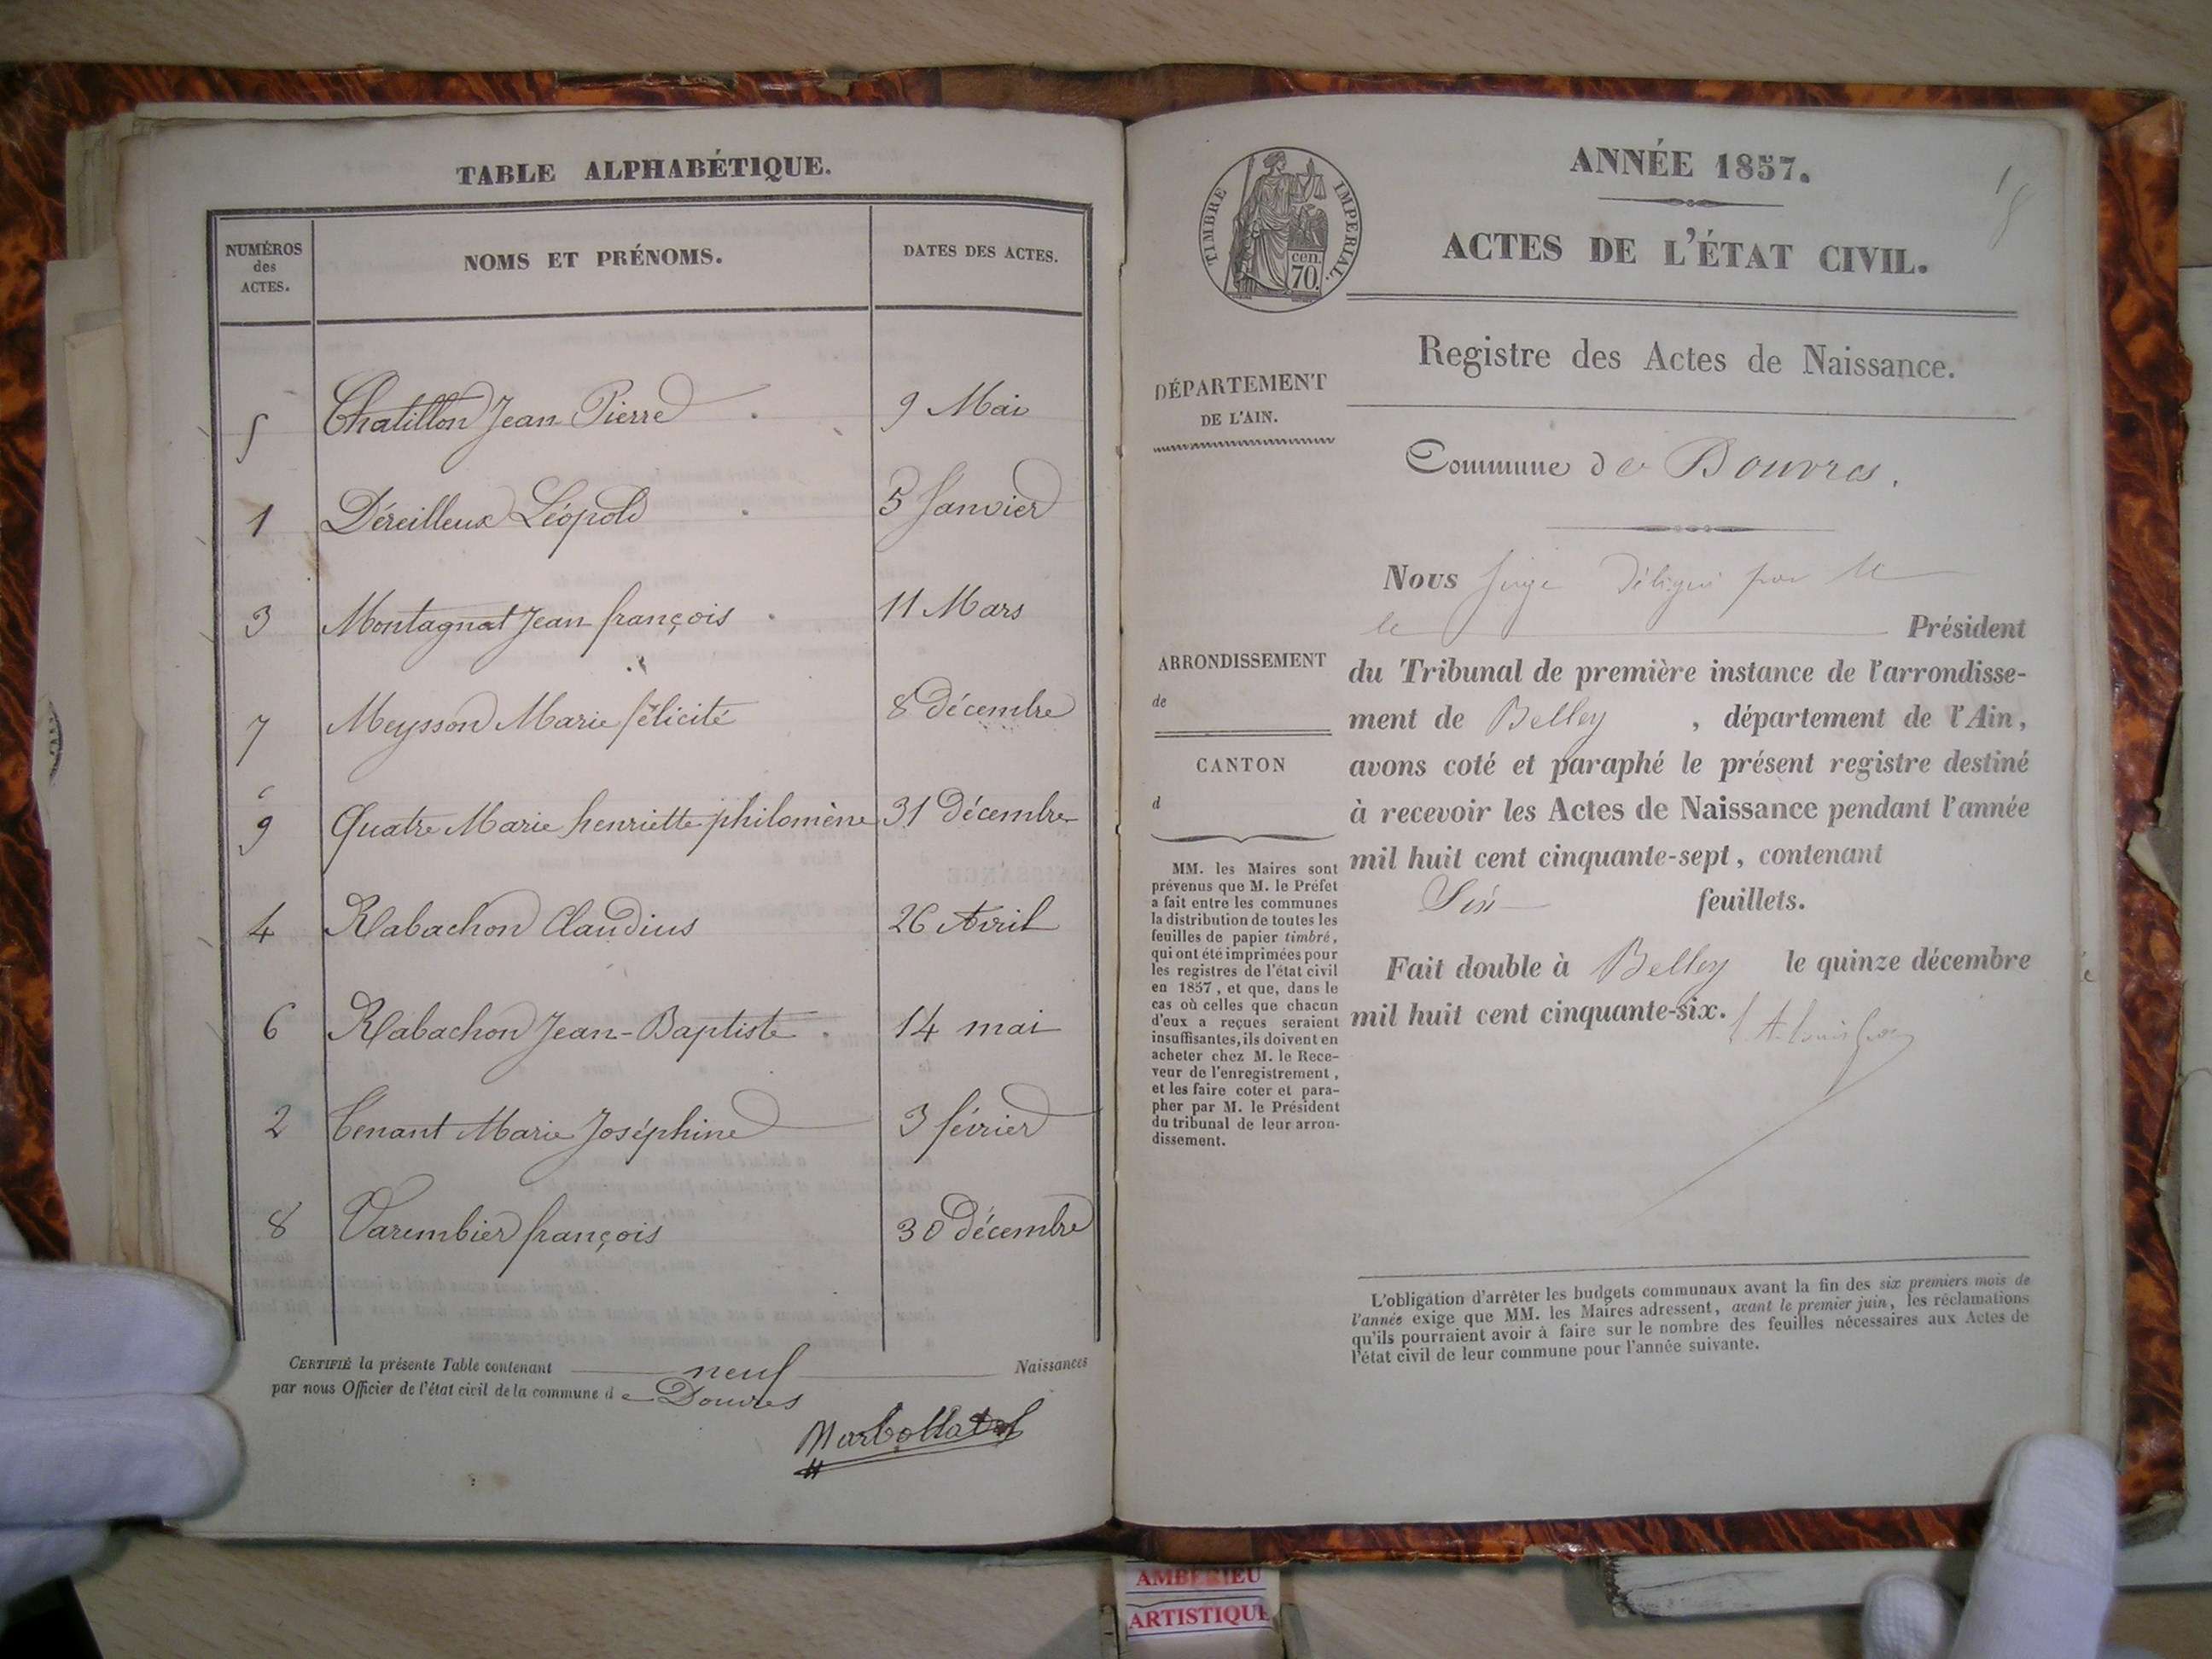 TABLE ALPHABÉTIQUE.
NUMÉROS des ACTES. NOMS ET PRÉNOMS. DATES DES ACTES.
5 Chatillon Jean Pierre 9 Mai
1 Déreilleux Léopold 5 Janvier
3 Montagnat Jean françois 11 Mars
7 Meysson Marie félicité 8 décembre
9 Quatre Marie henriette philomène 31 Décembre
4 Rabachon Claudius 26 Avril
6 Rabachon Jean-Baptiste 14 mai
2 Tenant Marie Joséphine 3 février
8 Varembier françois 30 décembre
CERTIFIÉ la présente Table contenant neuf Naissances
par nous Officier de l'état civil de la commune de Douvres
TIMBRE IMPÉRIAL.
cen.
70.
ANNÉE 1857.
ACTES DE L'ÉTAT CIVIL.
Registre des Actes de Naissance.
DÉPARTEMENT
DE L'AIN.
Commune de Douvres.
ARRONDISSEMENT
de
CANTON
d
Nous Juge délégué par M
le Président
du Tribunal de première instance de l'arrondisse-
ment de Belley, département de l'Ain,
avons coté et paraphé le présent registre destiné
à recevoir les Actes de Naissance pendant l'année
mil huit cent cinquante-sept, contenant
Six feuillets.
Fait double à Belley le quinze décembre
mil huit cent cinquante-six.
MM. les Maires sont
prévenus que M. le Préfet
a fait entre les communes
la distribution de toutes les
feuilles de papier timbré,
qui ont été imprimées pour
les registres de l'état civil
en 1857, et que, dans le
cas où celles que chacun
d'eux a reçues seraient
insuffisantes, ils doivent en
acheter chez M. le Rece-
veur de l'enregistrement,
et les faire coter et para-
pher par M. le Président
du tribunal de leur arron-
dissement.
L'obligation d'arrêter les budgets communaux avant la fin des six premiers mois de
l'année exige que MM. les Maires adressent, avant le premier juin, les réclamations
qu'ils pourraient avoir à faire sur le nombre des feuilles nécessaires aux Actes de
l'état civil de leur commune pour l'année suivante.
AMBERIEU
ARTISTIQUE